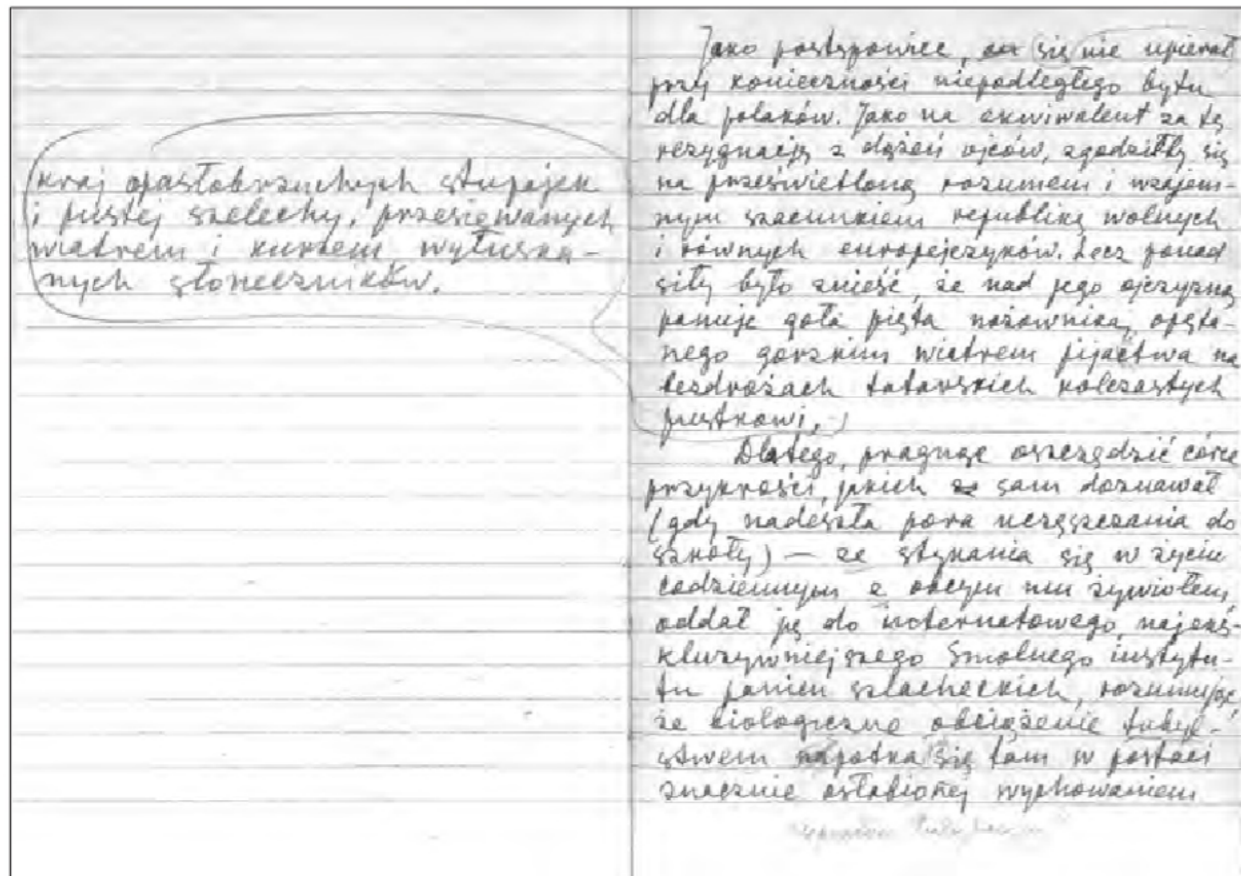 kraj opasłobrzuchych stupajek
i pustej szelechy, przesiewanych
wiatrem i kurzem wyłuska-
nych słoneczników.
Jako postępowiec, on się nie upierał
przy konieczności niepodległego bytu
dla polaków. Jako na ekwiwalent za tę
rezygnację z dążeń ojców, zgodziłby się
na prześwietloną rozumem i wzajem-
nym szacunkiem republikę wolnych
i równych europejczyków. Lecz ponad
siły było znieść, że nad jego ojczyzną
panuje goła pięta nożownika, opęta-
nego gorzkim wiatrem pijaństwa na
bezdrożach tatarskich kolczastych
pustkowi.
Dlatego, pragnąc oszczędzić córce
przykrości, jakich sam doznawał
(gdy nadeszła pora uczęszczania do
szkoły) — ze stykania się w życiu
codziennym z obcym mu żywiołem
oddał ją do internatowego, najeks-
kluzywniejszego Smolnego instytu-
tu panien szlacheckich, rozumując,
że biologiczne obciążenie tubyl-
stwem napotka się tam w postaci
znacznie osłabionej wychowaniem